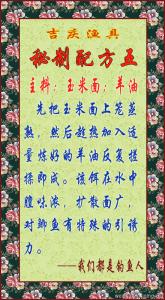 吉庆渔具
秘制配方五
主料：玉米面；羊油
先把玉米面上笼蒸
熟，然后趁热加入适
量炼好的羊油反复搓
揉即成。该饵在水中
膻味浓，扩散面广，
对鲫鱼有特殊的引诱
力。
——我们都是钓鱼人